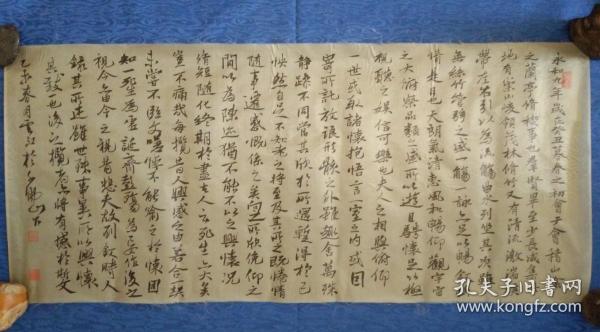 永和九年歲在癸丑暮春之初會于會稽山陰
之蘭亭脩稧事也羣賢畢至少長咸集此
地有崇山峻領茂林脩竹又有清流激湍
帶左右引以為流觴曲水列坐其次雖
無絲竹管弦之盛一觴一詠亦足以暢敘
情是日也天朗氣清惠風和暢仰觀宇宙
之大俯察品類之盛所以遊目騁懷足以極
視聽之娛信可樂也夫人之相與俯仰
一世或取諸懷抱悟言一室之內或因
寄所託放浪形骸之外雖趣舍萬殊
静躁不同當其欣於所遇暫得於己
怏然自足不知老之將至及其所之既惓情
隨事遷感慨係之矣向之所欣俛仰之
間以為陳迹猶不能不以之興懷況
脩短隨化終期於盡古人云死生亦大矣
豈不痛哉每攬昔人興感之由若合一契
未嘗不臨文嗟悼不能喻之於懷固
知一死生為虛誕齊彭殤為妄作後之
視今亦由今之視昔悲夫故列敘時人
錄其所述雖世殊事異所以興懷
其致一也後之攬者亦將有感於斯文
乙未春月書江於夕陽山下
孔夫子旧书网
www.kongfz.com